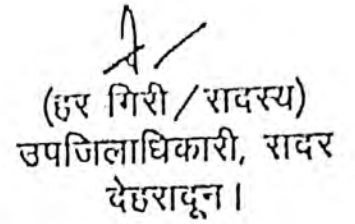 (हर गिरी / सदस्य)
उपजिलाधिकारी, सदर
देहरादून।